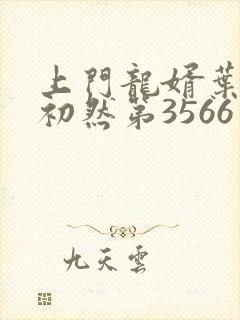 上門龍婿葉
初然第3566
九天雲